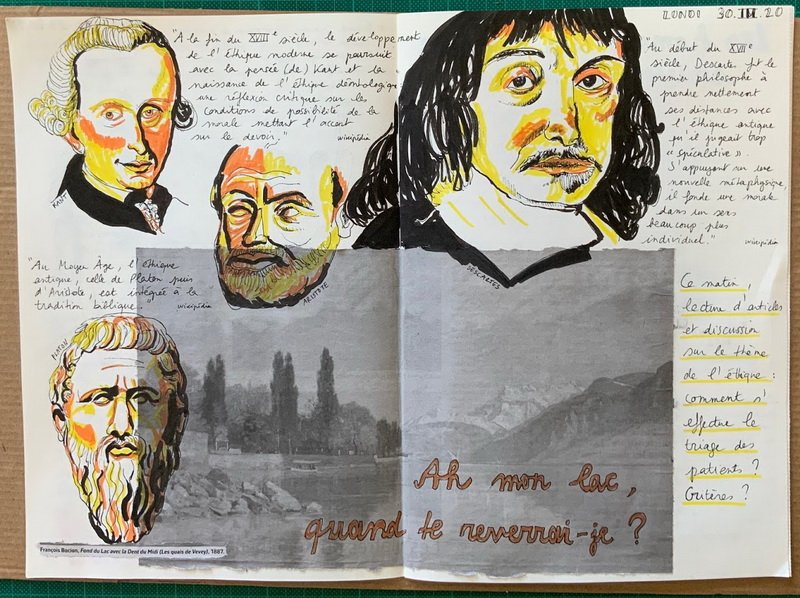 LUNDI 30.III.20
"A la fin du XVIIIe siècle, le développement
de l'Éthique moderne se poursuit
avec la pensée (de) Kant et la
naissance de l'éthique déontologique
une réflexion critique sur les
conditions de possibilité de la
morale mettant l'accent
sur le devoir."
wikipédia
KANT
ARISTOTE
"Au Moyen Âge, l'éthique
antique, celle de Platon puis
d'Aristote, est intégrée à la
tradition biblique."
wikipédia
PLATON
François Bocion, Fond du Lac avec la Dent du Midi (Les quais de Vevey), 1887.
DESCARTES
"Au début du XVIIe
siècle, Descartes fut le
premier philosophe à
prendre nettement
ses distances avec
l'éthique antique
qu'il jugeait trop
« spéculative ».
S'appuyant sur une
nouvelle métaphysique,
il fonde une morale
dans un sens
beaucoup plus
individuel."
wikipédia
Ce matin,
lecture d'articles
et discussion
sur le thème
de l'éthique :
comment s'
effectue le
triage des
patients ?
Critères ?
Ah mon lac,
quand te reverrai-je ?